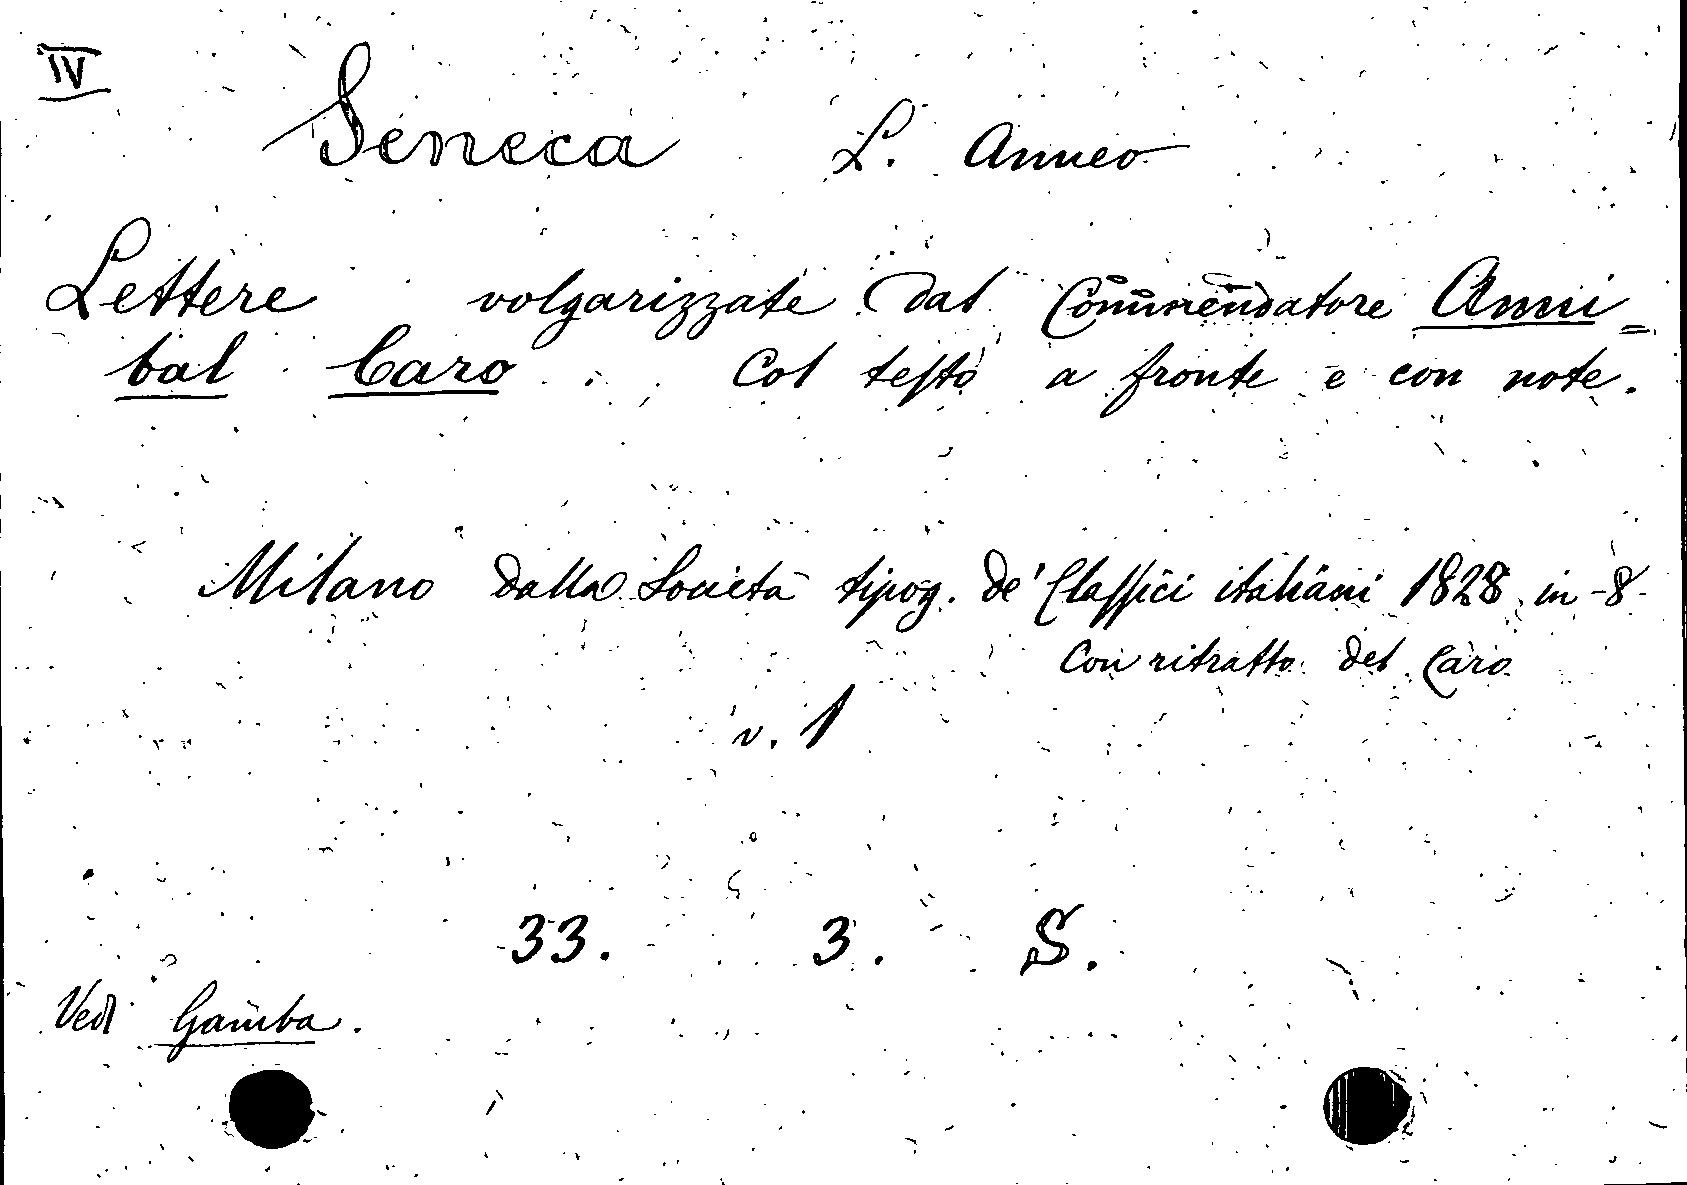 IV
Seneca L. Anneo
Lettere volgarizzate dal Commendatore Anni=
bal Caro. Col testo a fronte e con note.
Milano dalla Società tipog. de' Classici italiani 1828 in-8
Con ritratto del Caro
v. 1
33. 3. S.
Vedi Gamba.